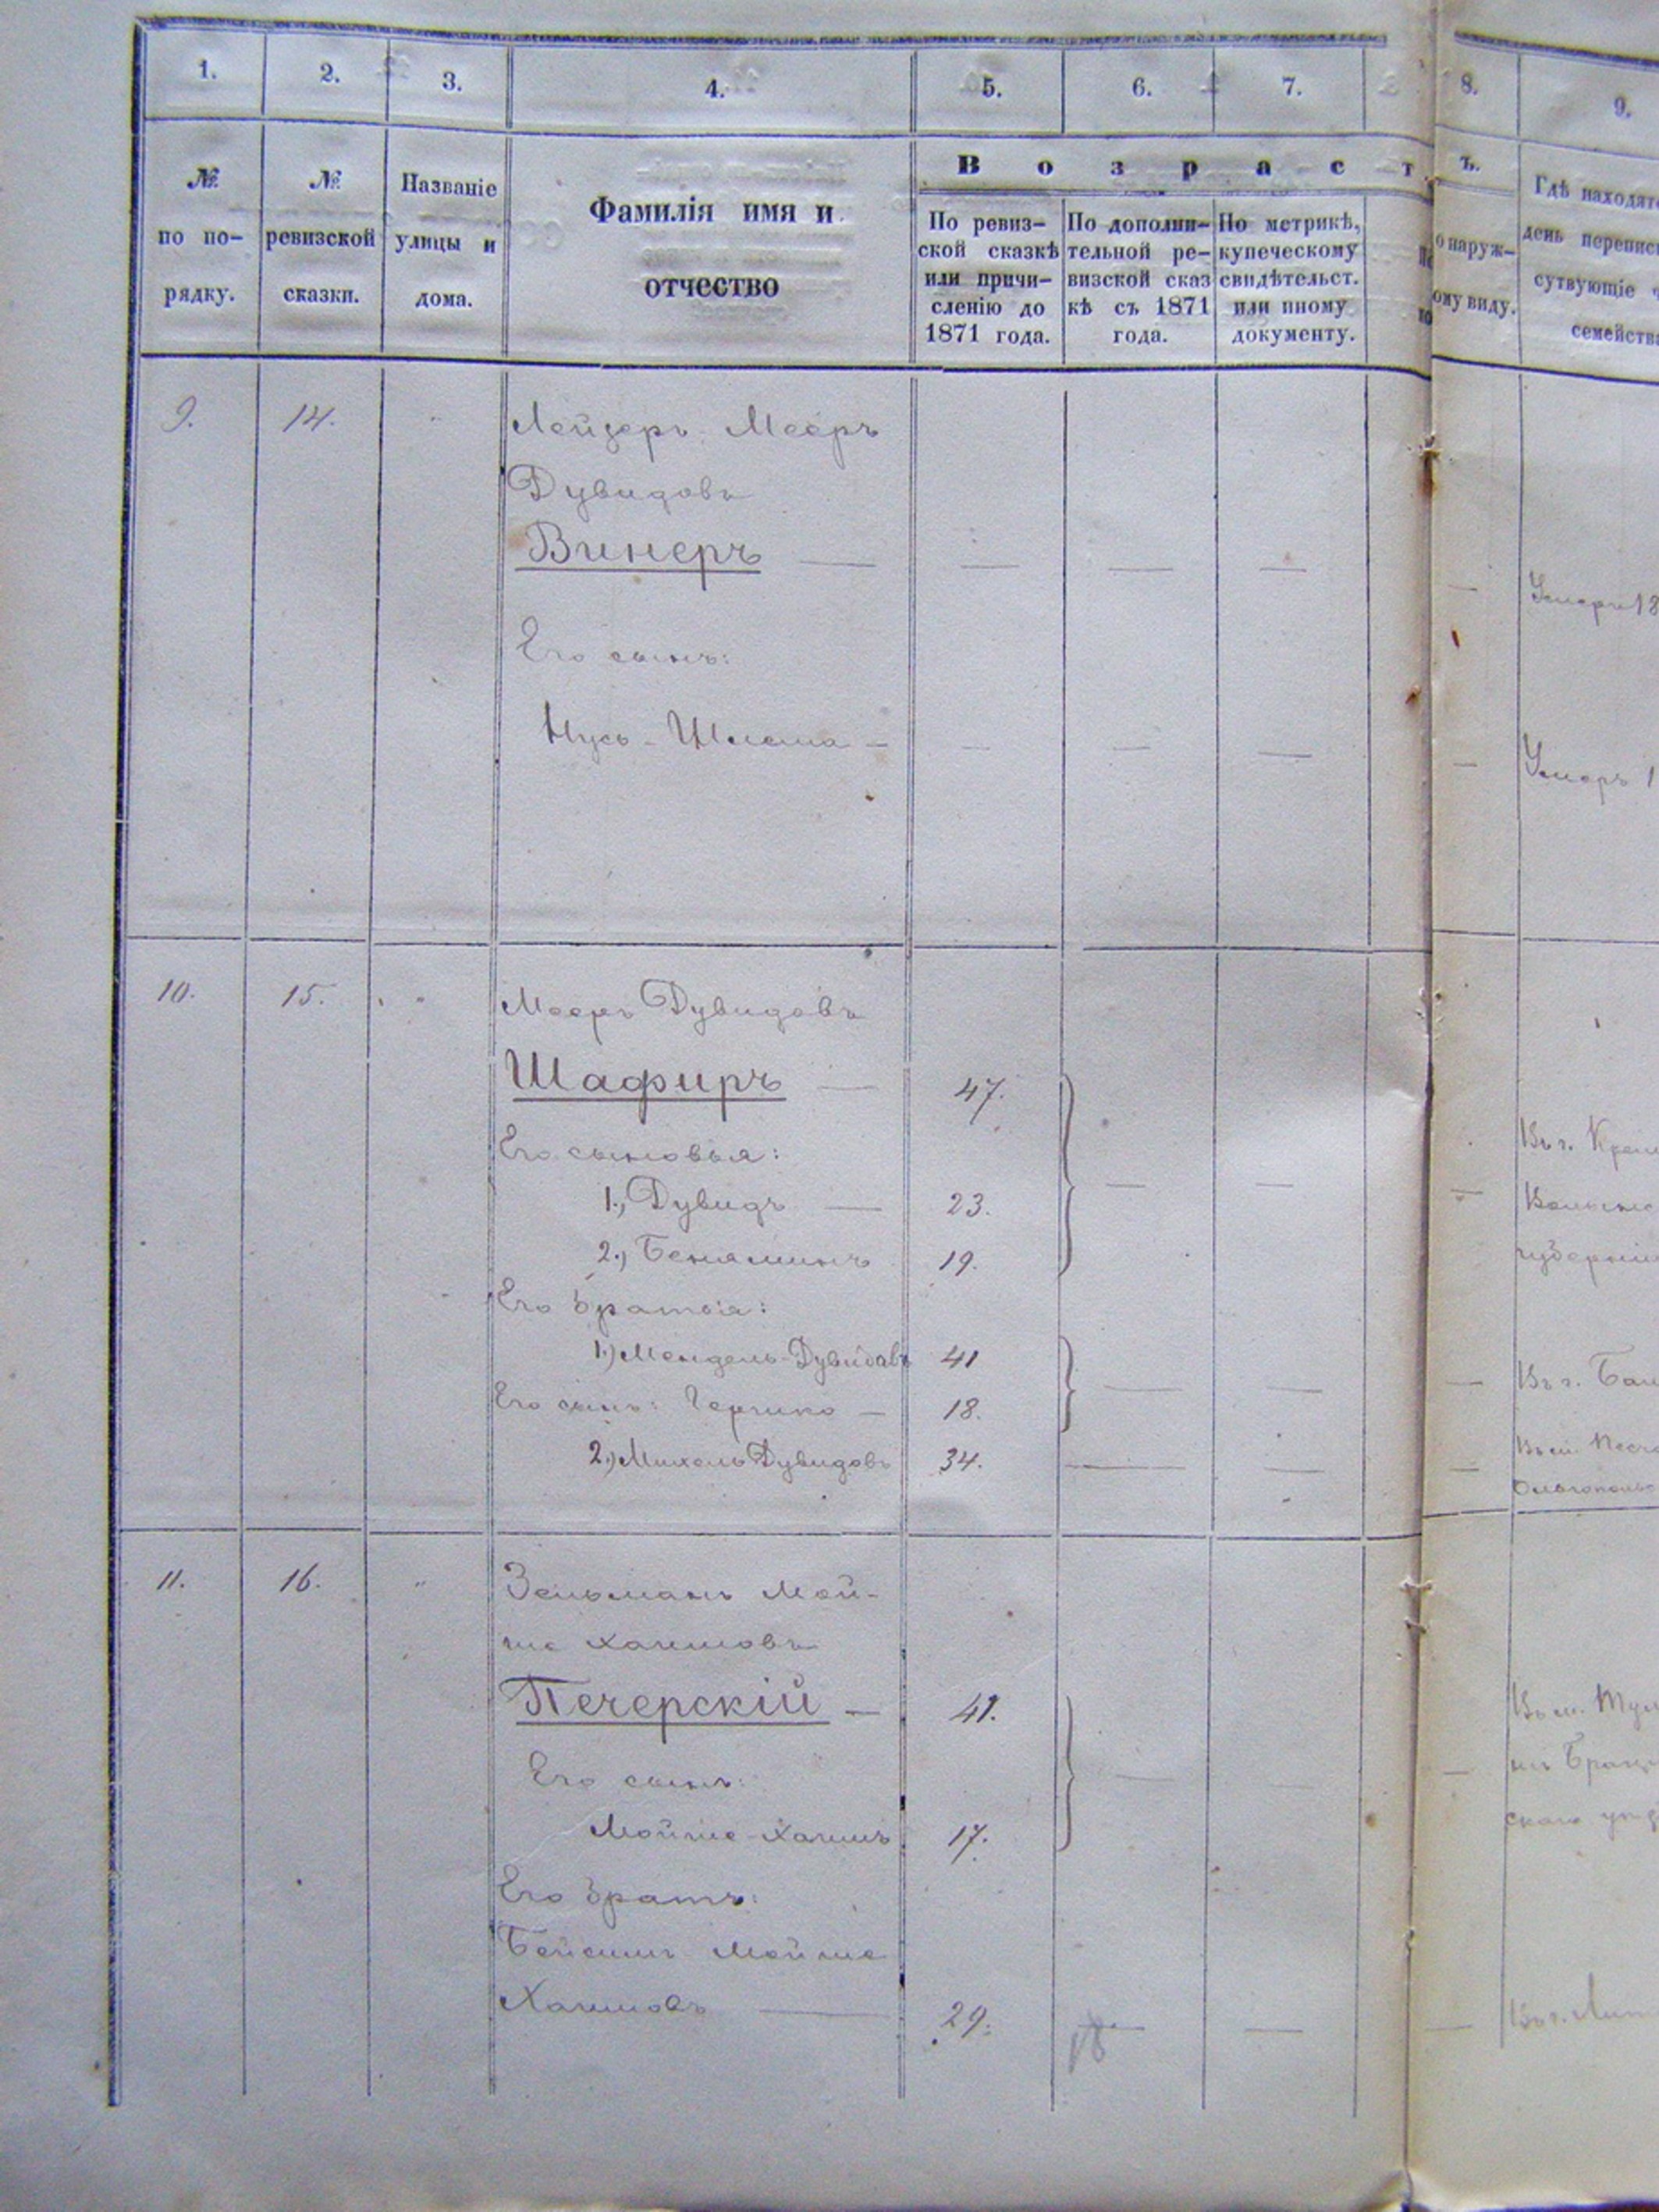 1. 2. 3. 4. 5. 6. 7. 8. 9.
№ по по-
рядку.
№
ревизской
сказки.
Названіе
улицы и
дома.
Фамилія имя и
отчество
Возрастъ.
По ревиз-
ской сказкѣ
или причи-
сленію до
1871 года.
По дополни-
тельной ре-
визской сказ
кѣ съ 1871
года.
По метрикѣ,
купеческому
свидѣтельст.
или иному
документу.
о наруж-
ому виду.
Гдѣ находят
день переписи
сутвующіе
семейств
9. 14. Лейзеръ-Мееръ
Дувидовъ
Винеръ — — — — — Умеръ 18
Его сынъ:
Нусь-Шлема — — — — — Умеръ 1
10. 15. " Мееръ Дувидовъ
Шафиръ — 47.
Его сыновья:
Въ г.
1., Дувидъ — 23. — — —
2., Беняминъ 19.
губерніи
Его братья:
1.) Мендель-Дувидовъ 41 — — — Въ г.
Его сынъ: Гершко — 18.
2.) Михель Дувидовъ 34. — — —
11. 16. " Зельманъ Мой-
ше Хаимовъ
Печерскій — 41. Въ м.
Его сынъ: — — —
Мойше-Хаимъ 17.
скаго
Его братъ:
Мойше
Хаимовъ — 29. — — — Въ г.
18